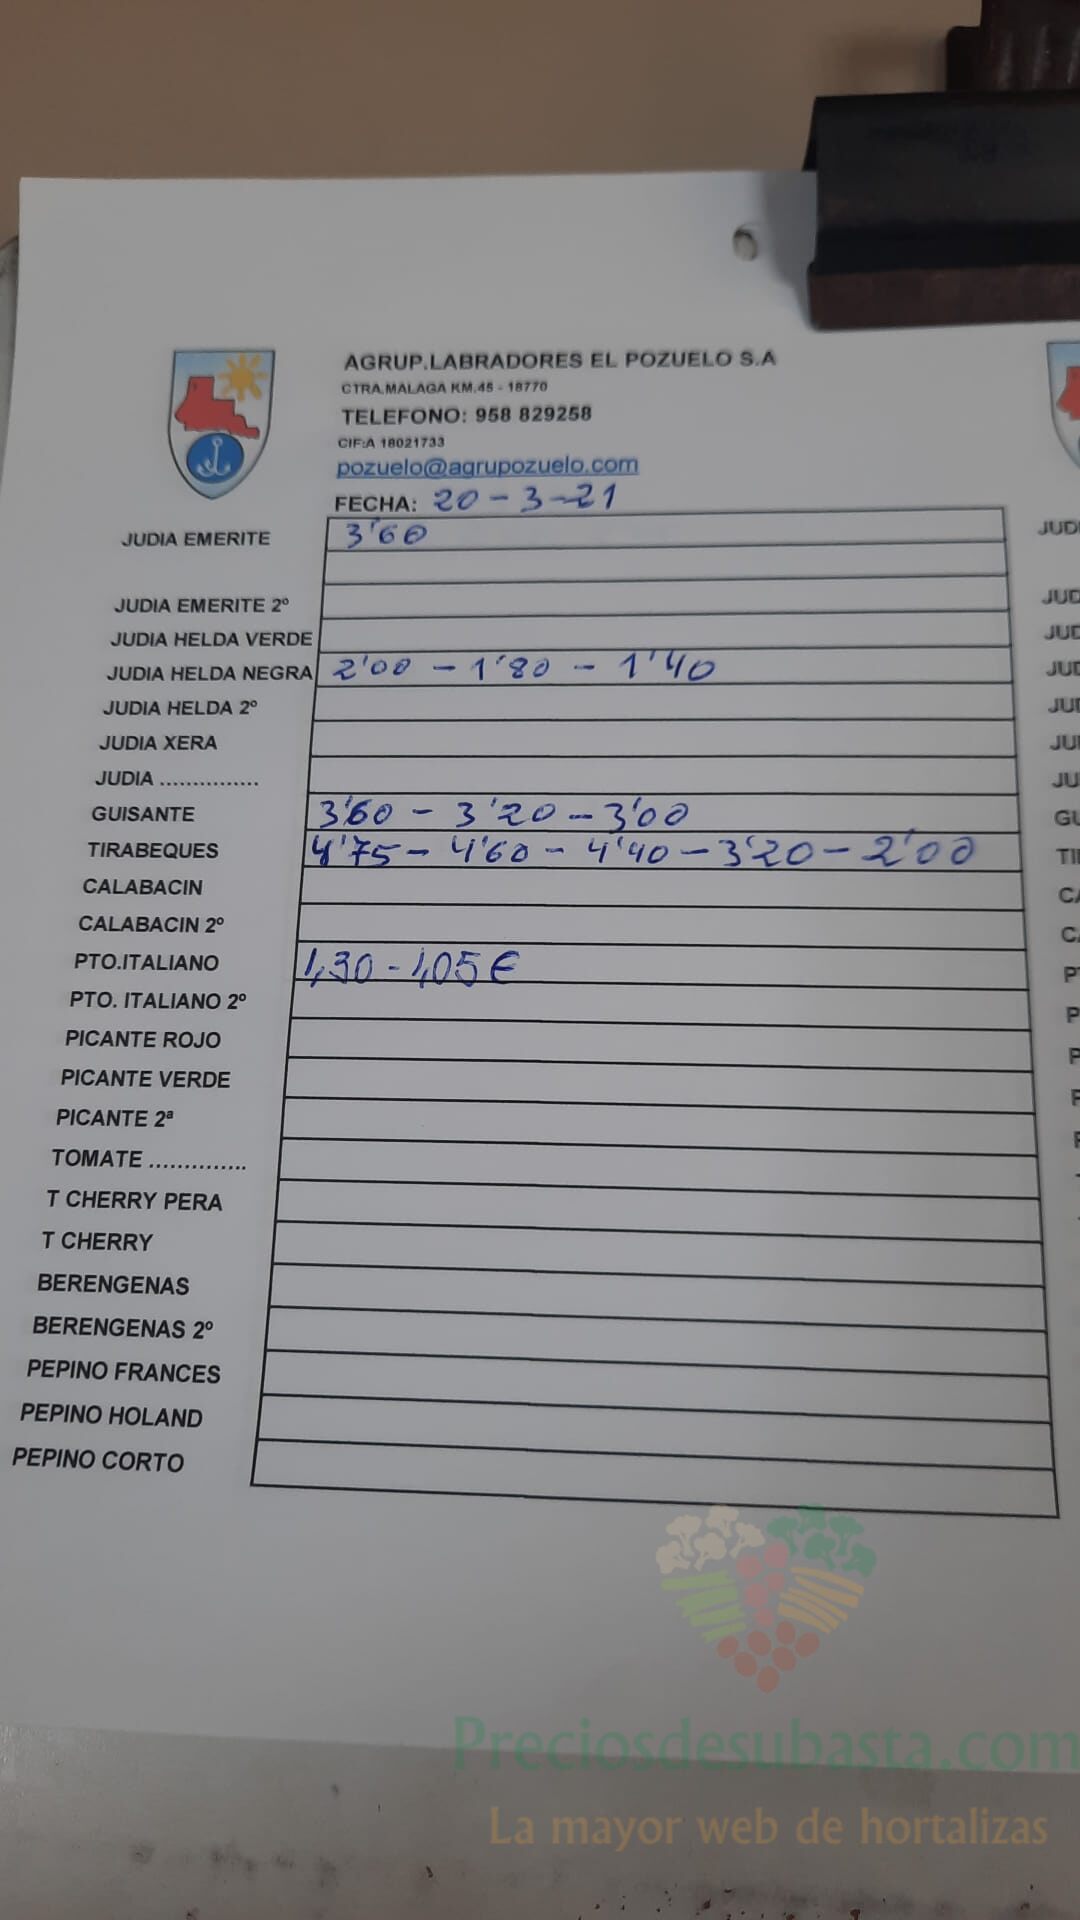 AGRUP.LABRADORES EL POZUELO S.A
CTRA.MALAGA KM.45 - 18770
TELEFONO: 958 829258
CIF:A 18021733
pozuelo@agrupozuelo.com
FECHA: 20-3-21
JUDIA EMERITE 3'60
JUDIA EMERITE 2º
JUDIA HELDA VERDE
JUDIA HELDA NEGRA 2'00 - 1'80 - 1'40
JUDIA HELDA 2º
JUDIA XERA
JUDIA ...............
GUISANTE 3'60 - 3'20 - 3'00
TIRABEQUES 4'75 - 4'60 - 4'40 - 3'20 - 2'00
CALABACIN
CALABACIN 2º
PTO.ITALIANO 1,30 - 1,05 €
PTO. ITALIANO 2º
PICANTE ROJO
PICANTE VERDE
PICANTE 2ª
TOMATE ...............
T CHERRY PERA
T CHERRY
BERENGENAS
BERENGENAS 2º
PEPINO FRANCES
PEPINO HOLAND
PEPINO CORTO
Preciosdesubasta.com
La mayor web de hortalizas